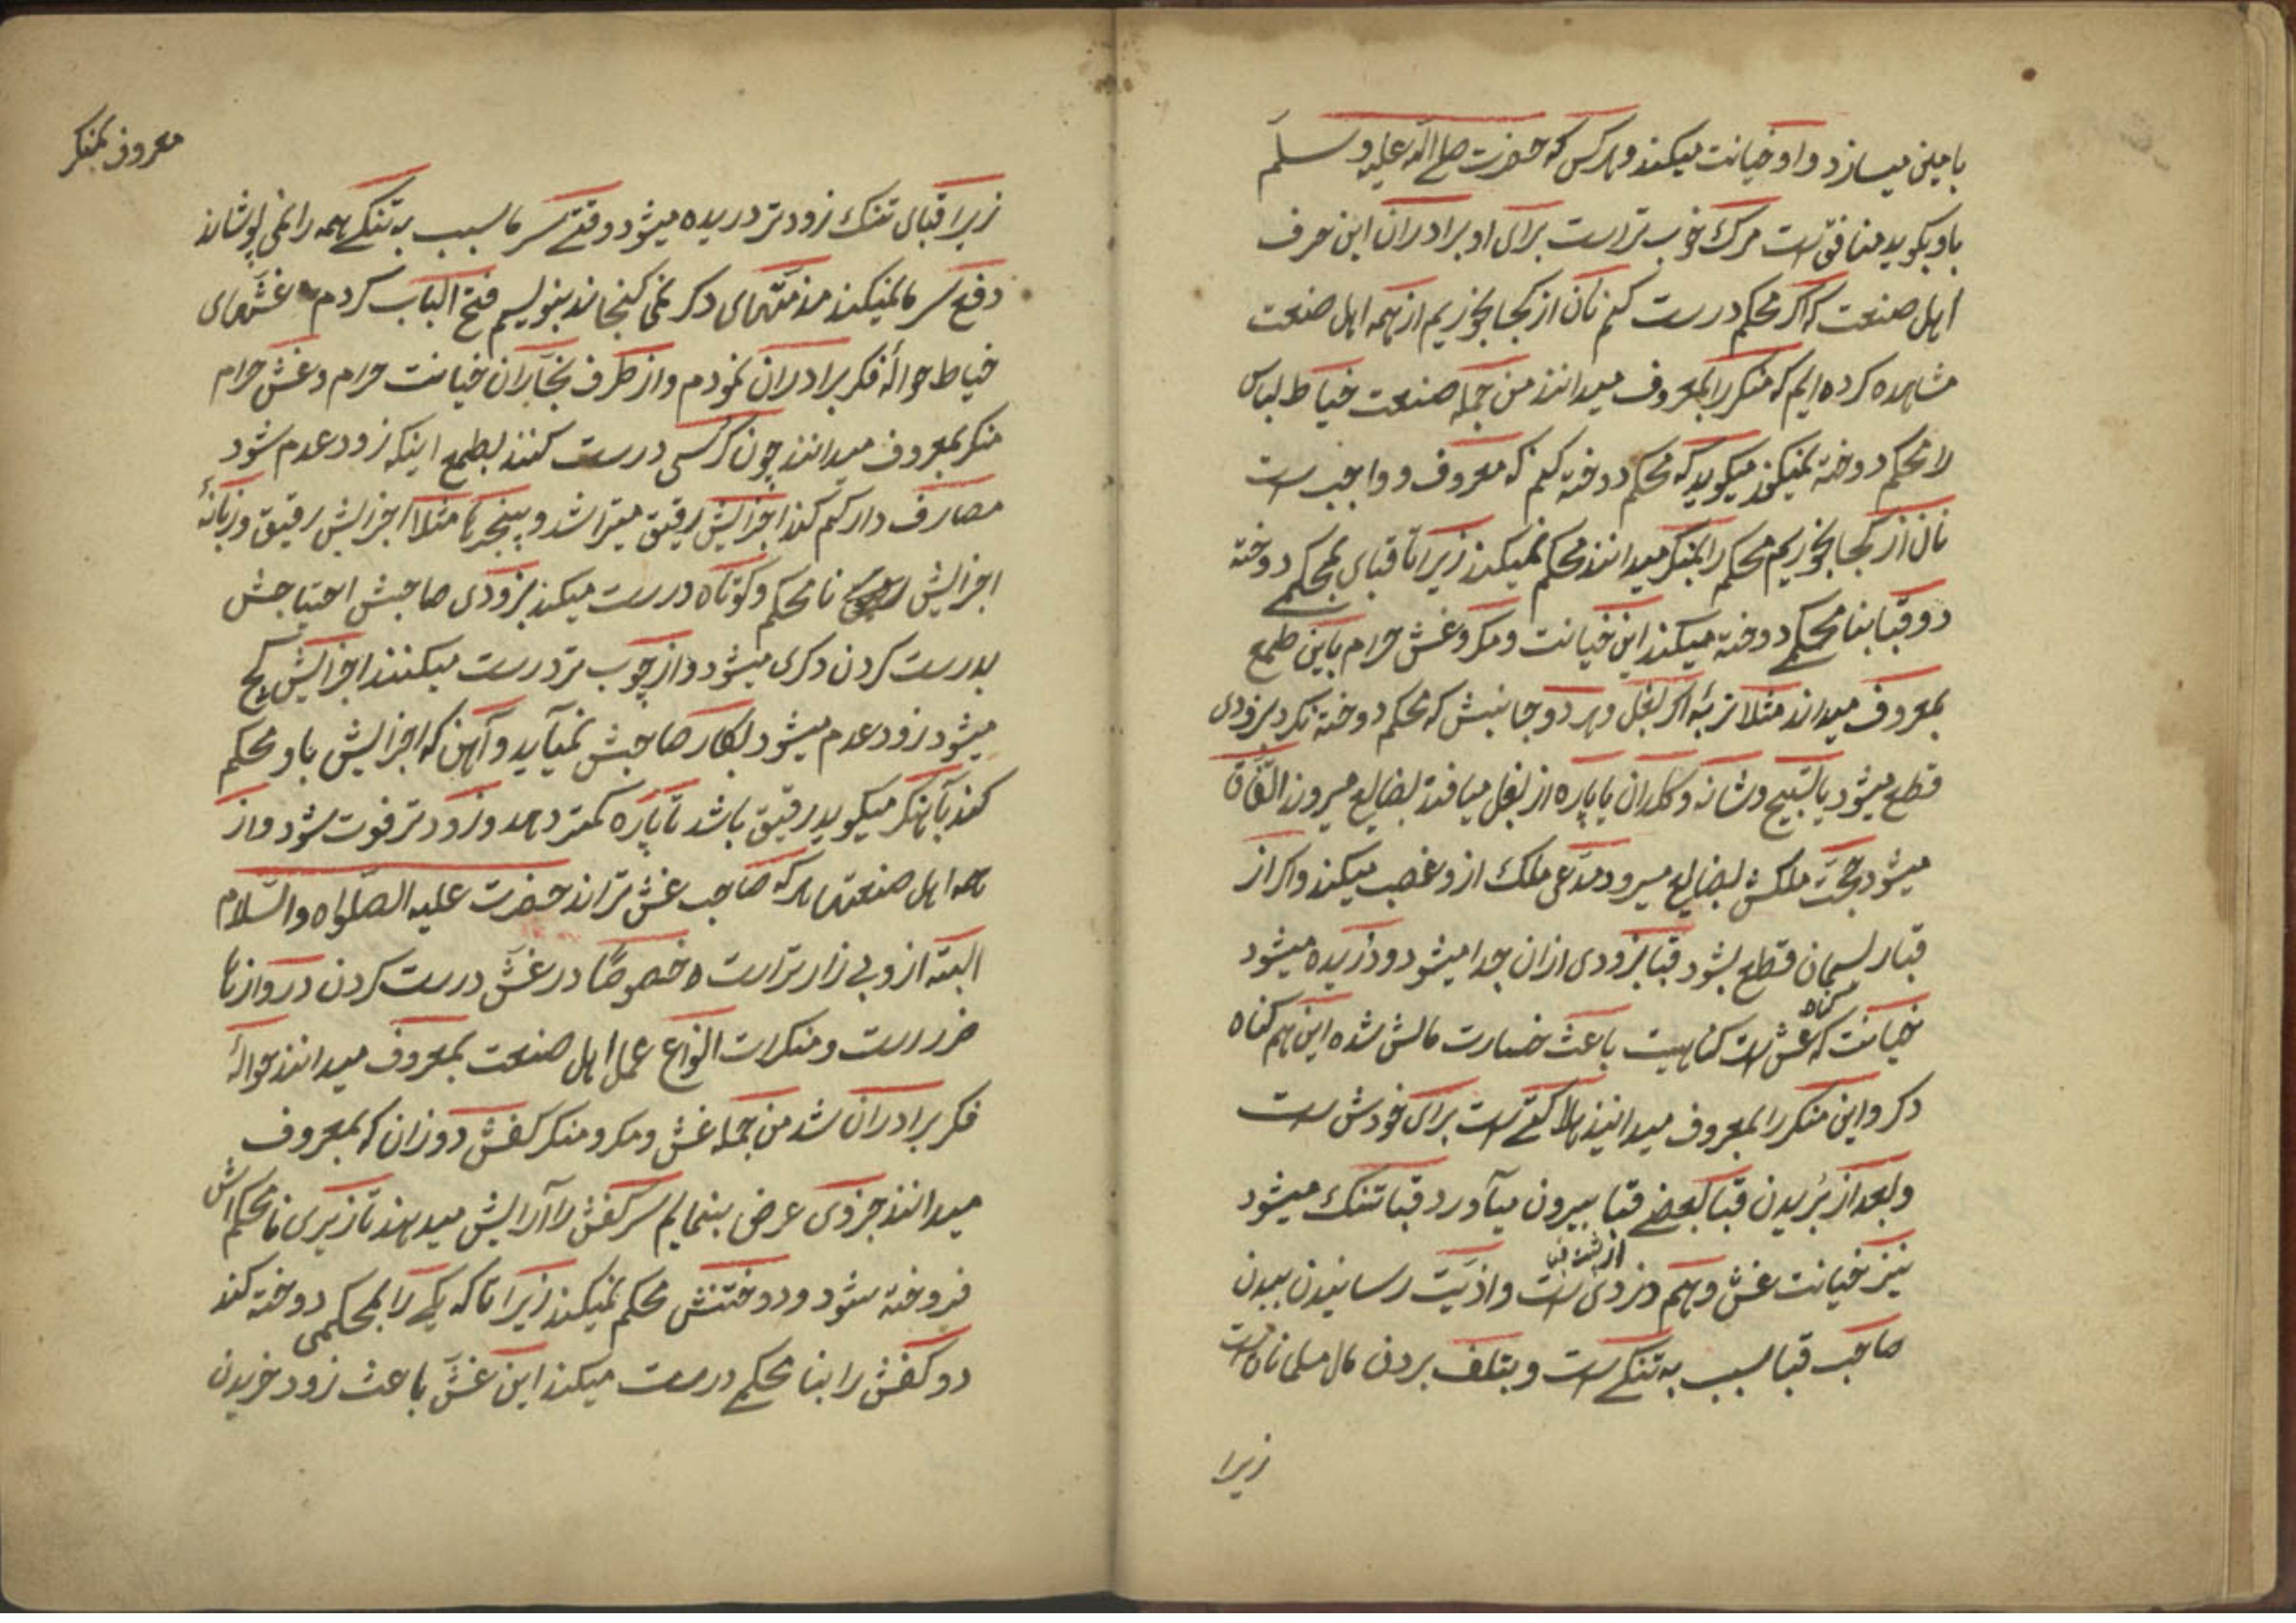 بامین میسازد و او خیانت میکند و هر کس که حضرت صلی الله علیه و سلم
باو بکوید منافق است مرک خوب تر است برای او برادران این حرف
اهل صنعت که اکر محکم درست کنم نان از کجا بخوریم از همه اهل صنعت
مشاهده کرده ایم که منکر را بمعروف میدانند من جمله صنعت خیاط لباس
را محکم دوخته نمیکند میکوید که محکم دوخته کنم که معروف و واجب است
نان از کجا بخوریم محکم را بمنکر میدانند محکم نمیکند زیرا تا قبای بمحکمی دوخته
دو قبا بنا محکمی دوخته میکند این خیانت و مکر و غش حرام باین طمع
بمعروف میداند مثلا اکر بغل و هر دو جانبش که محکم دوخته نکرد بزودی
قطع میشود یا تسبیح و شانه و کلدان یا پاره از بغل میافتد بضایع میرود اتفاق
میشود حجت ملکش بضایع میرود مدعی ملک از و غصب میکند و اکر از
قبا ریسمان قطع بشود قبا بزودی ازان جدا میشود و دریده میشود
خیانت که غش است کناهیست باعث خسارت مالش شده این هم کناه
کناه
دکر و این منکر را بمعروف میدانید هلاکتی است برای خودش است
و بعد از بریدن قبا بعضی قبا بیرون میآورد قبا تنک میشود
نیز خیانت غش و هم دزدی است و اذیت رسانیدن ببدن
صاحب قبا بسبب به تنکی است و بتلف بردن مال مسلمانان است
زیرا
معروف بمنکر
زیرا قبای تنک زودتر دریده میشود وقتی سرما بسبب به تنکی همه را نمی پوشاند
دفع سرما نمیکند مذمتهای دکر نمی کنجاند بنویسم فتح الباب کردم غشهای
خیاط حوالهٔ فکر برادران نمودم و از طرف نجاران خیانت حرام و غش حرام
منکر بمعروف میدانند چون کرسی درست کنند بطمع اینکه زود عدم شود
مصارف دار کم کند اجزایش رقیق میتراشد و پنجره مثلا اجزایش رقیق و زبانهٔ
اجزایش نا محکم و کوتاه درست میکند بزودی صاحبش احتیاجش
بدرست کردن دکری میشود و از چوب تر درست میکنند اجزایش کج
میشود زود عدم میشود بکار صاحبش نمیآید و آهن که اجزایش باو محکم
کند بآهنکر میکوید رقیق باشد تا پاره کمتر دهد و زودتر فوت شود و از
همه اهل صنعتها هر که صاحب غش تراند حضرت علیه الصلواه والسلام
البته از و بی زارتر است خصوصا در غش درست کردن دروازها
ضرر است و منکرات انواع عمل اهل صنعت بمعروف میدانند حوالهٔ
فکر برادران شد من جمله غش و مکر و منکر کفش دوزان که بمعروف
میدانند جزوی عرض بنمایم سر کفش را آرایش میدهند تا زیری نا محکم اش
فروخته شود و دوختنش محکم نمیکند زیرا تا که یکی را بمحکمی دوخته کند
دو کفش را بنا محکمی درست میکند این غش باعث زود خریدن